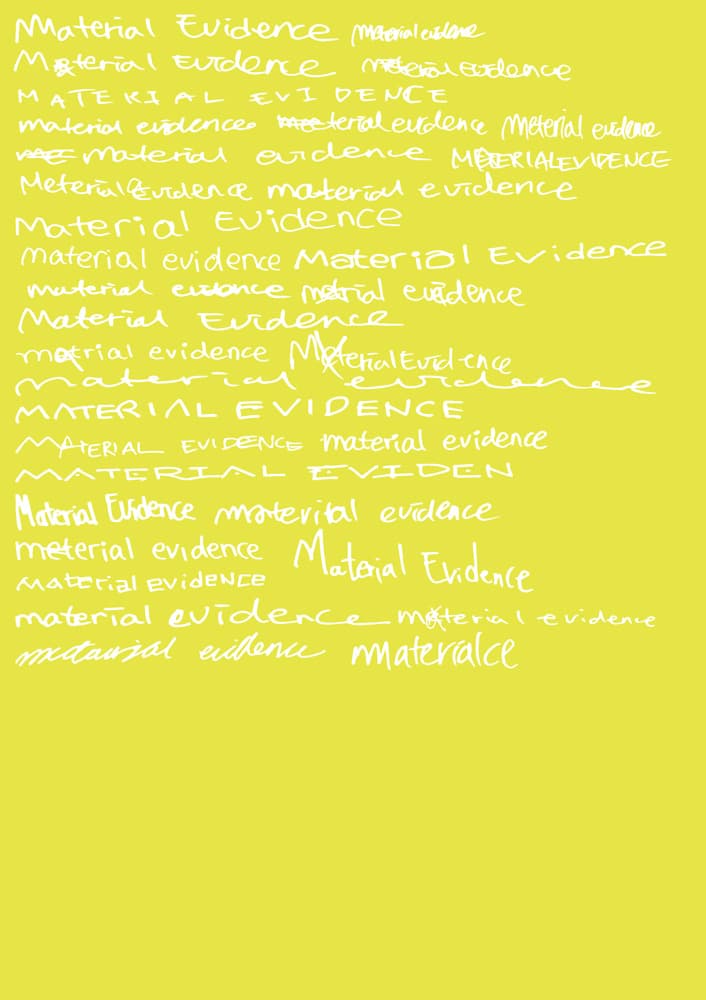 Material Evidence material evidence
Material Evidence material Evidence
MATERIAL EVIDENCE
material evidence meeterial evidence Meterial evidence
me material evidence METERIAL EVIDENCE
Meterial Evidence material evidence
Material Evidence
material evidence Material Evidence
material evidence matrial evidence
Material Evidence
matrial evidence Material Evidence
material evidence
MATERIAL EVIDENCE
MATERIAL EVIDENCE material evidence
MATERIAL EVIDEN
Material Evidence material evidence
meterial evidence Material Evidence
material evidence
material evidence material evidence
material evidence materialce